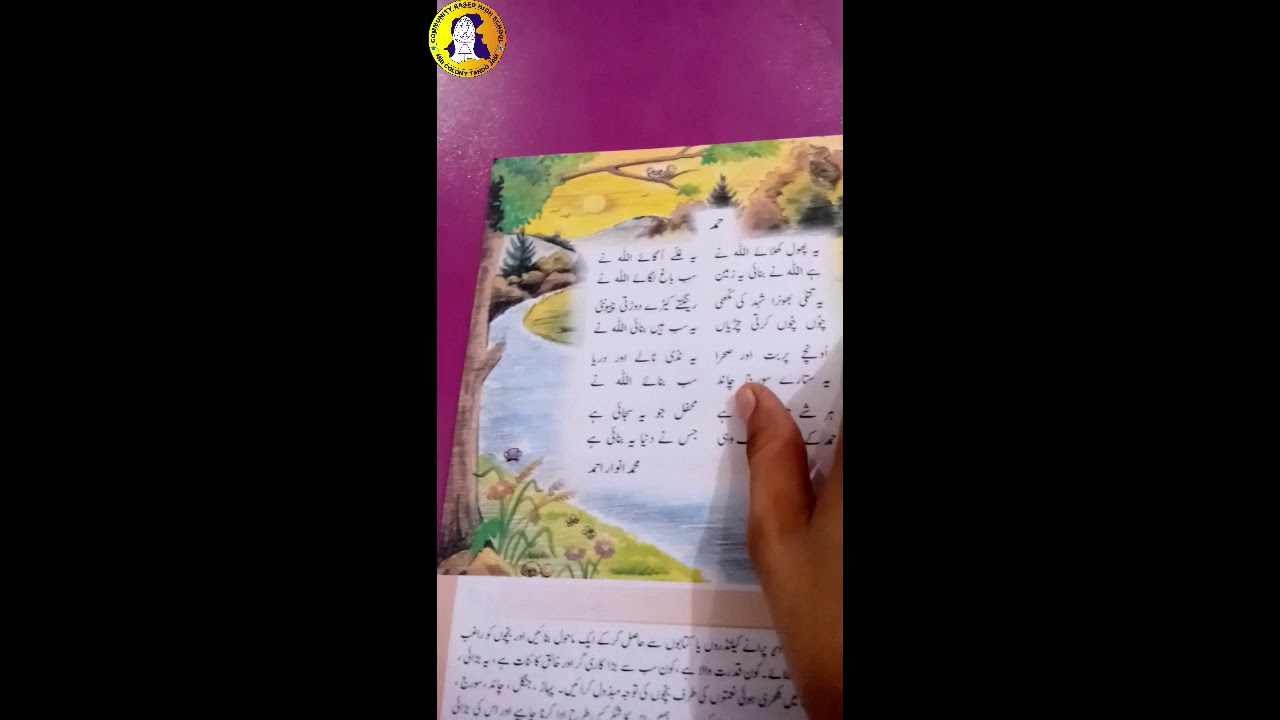 COMMUNITY BASED HIGH SCHOOL
COLONY TANDO JAM
حمد
یہ پھول کھلائے اللہ نے یہ غلّے اُگائے اللہ نے
ہے اللہ نے بنائی یہ زمین سب باغ لگائے اللہ نے
یہ تتلی بھونرا شہد کی مکھی رینگتے کیڑے دوڑتی چیونٹی
چوں چوں کرتی چڑیاں یہ سب ہیں بنائی اللہ نے
اُونچے پربت اور صحرا یہ ندّی نالے اور دریا
یہ ستارے سورج چاند سب بنائے اللہ نے
ہر شے ہے محفل جو یہ سجائی ہے
حمد کے وہی جس نے دنیا یہ بنائی ہے
محمد انوار احمد
پرانے کیلنڈروں یا کتابوں سے حاصل کرکے ایک ماحول بنائیں اور بچّوں کو راغب
کون قدرت والا ہے، کون سب سے بڑا کاری گر اور خالقِ کائنات ہے، یہ بڑائی،
میں بکھری ہوئی نعمتوں کی طرف بچّوں کی توجہ مبذول کرائیں۔ پہاڑ، جنگل، چاند، سورج،
شکر کس طرح ادا کرنا چاہیے اور اس کی بڑائی